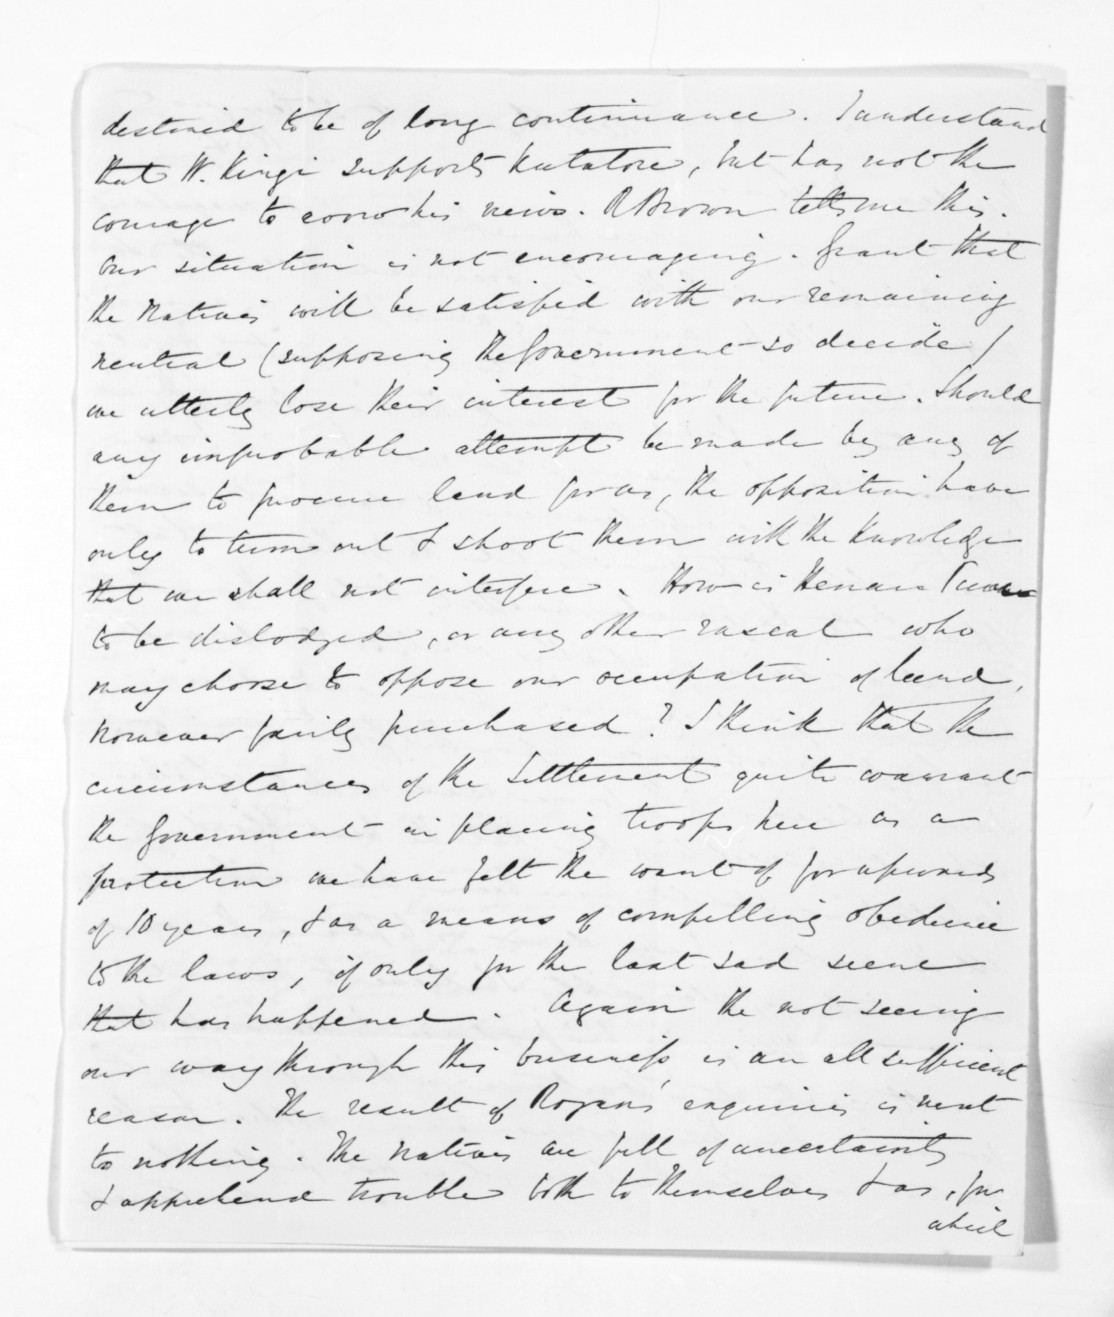 destined to be of long continuance. I understand
that W. Kingi supports Katatore, but has not the
courage to avow his views. R Brown tells me this.
Our situation is not encouraging. Grant that
the Natives will be satisfied with our remaining
neutral (supposing the Government so decide)
we utterly lose their interest for the future. Should
any improbable attempt be made by any of
them to procure land for us, the opposition have
only to turn out & shoot them with the knowledge
that we shall not interfere. How is
to be dislodged, or any other rascal who
may choose to oppose our occupation of land,
however fairly purchased? I think that the
circumstances of the Settlement quite warrant
the Government in placing troops here as a
protection we have felt the want of for upwards
of 10 years, & as a means of compelling obedience
to the laws, if only for the last sad scene
that has happened. Again the not seeing
our way through this business, is an all sufficient
reason. The result of Rogan's enquiries is next
to nothing. The Natives are full of uncertainty
& apprehend trouble both to themselves & us, for